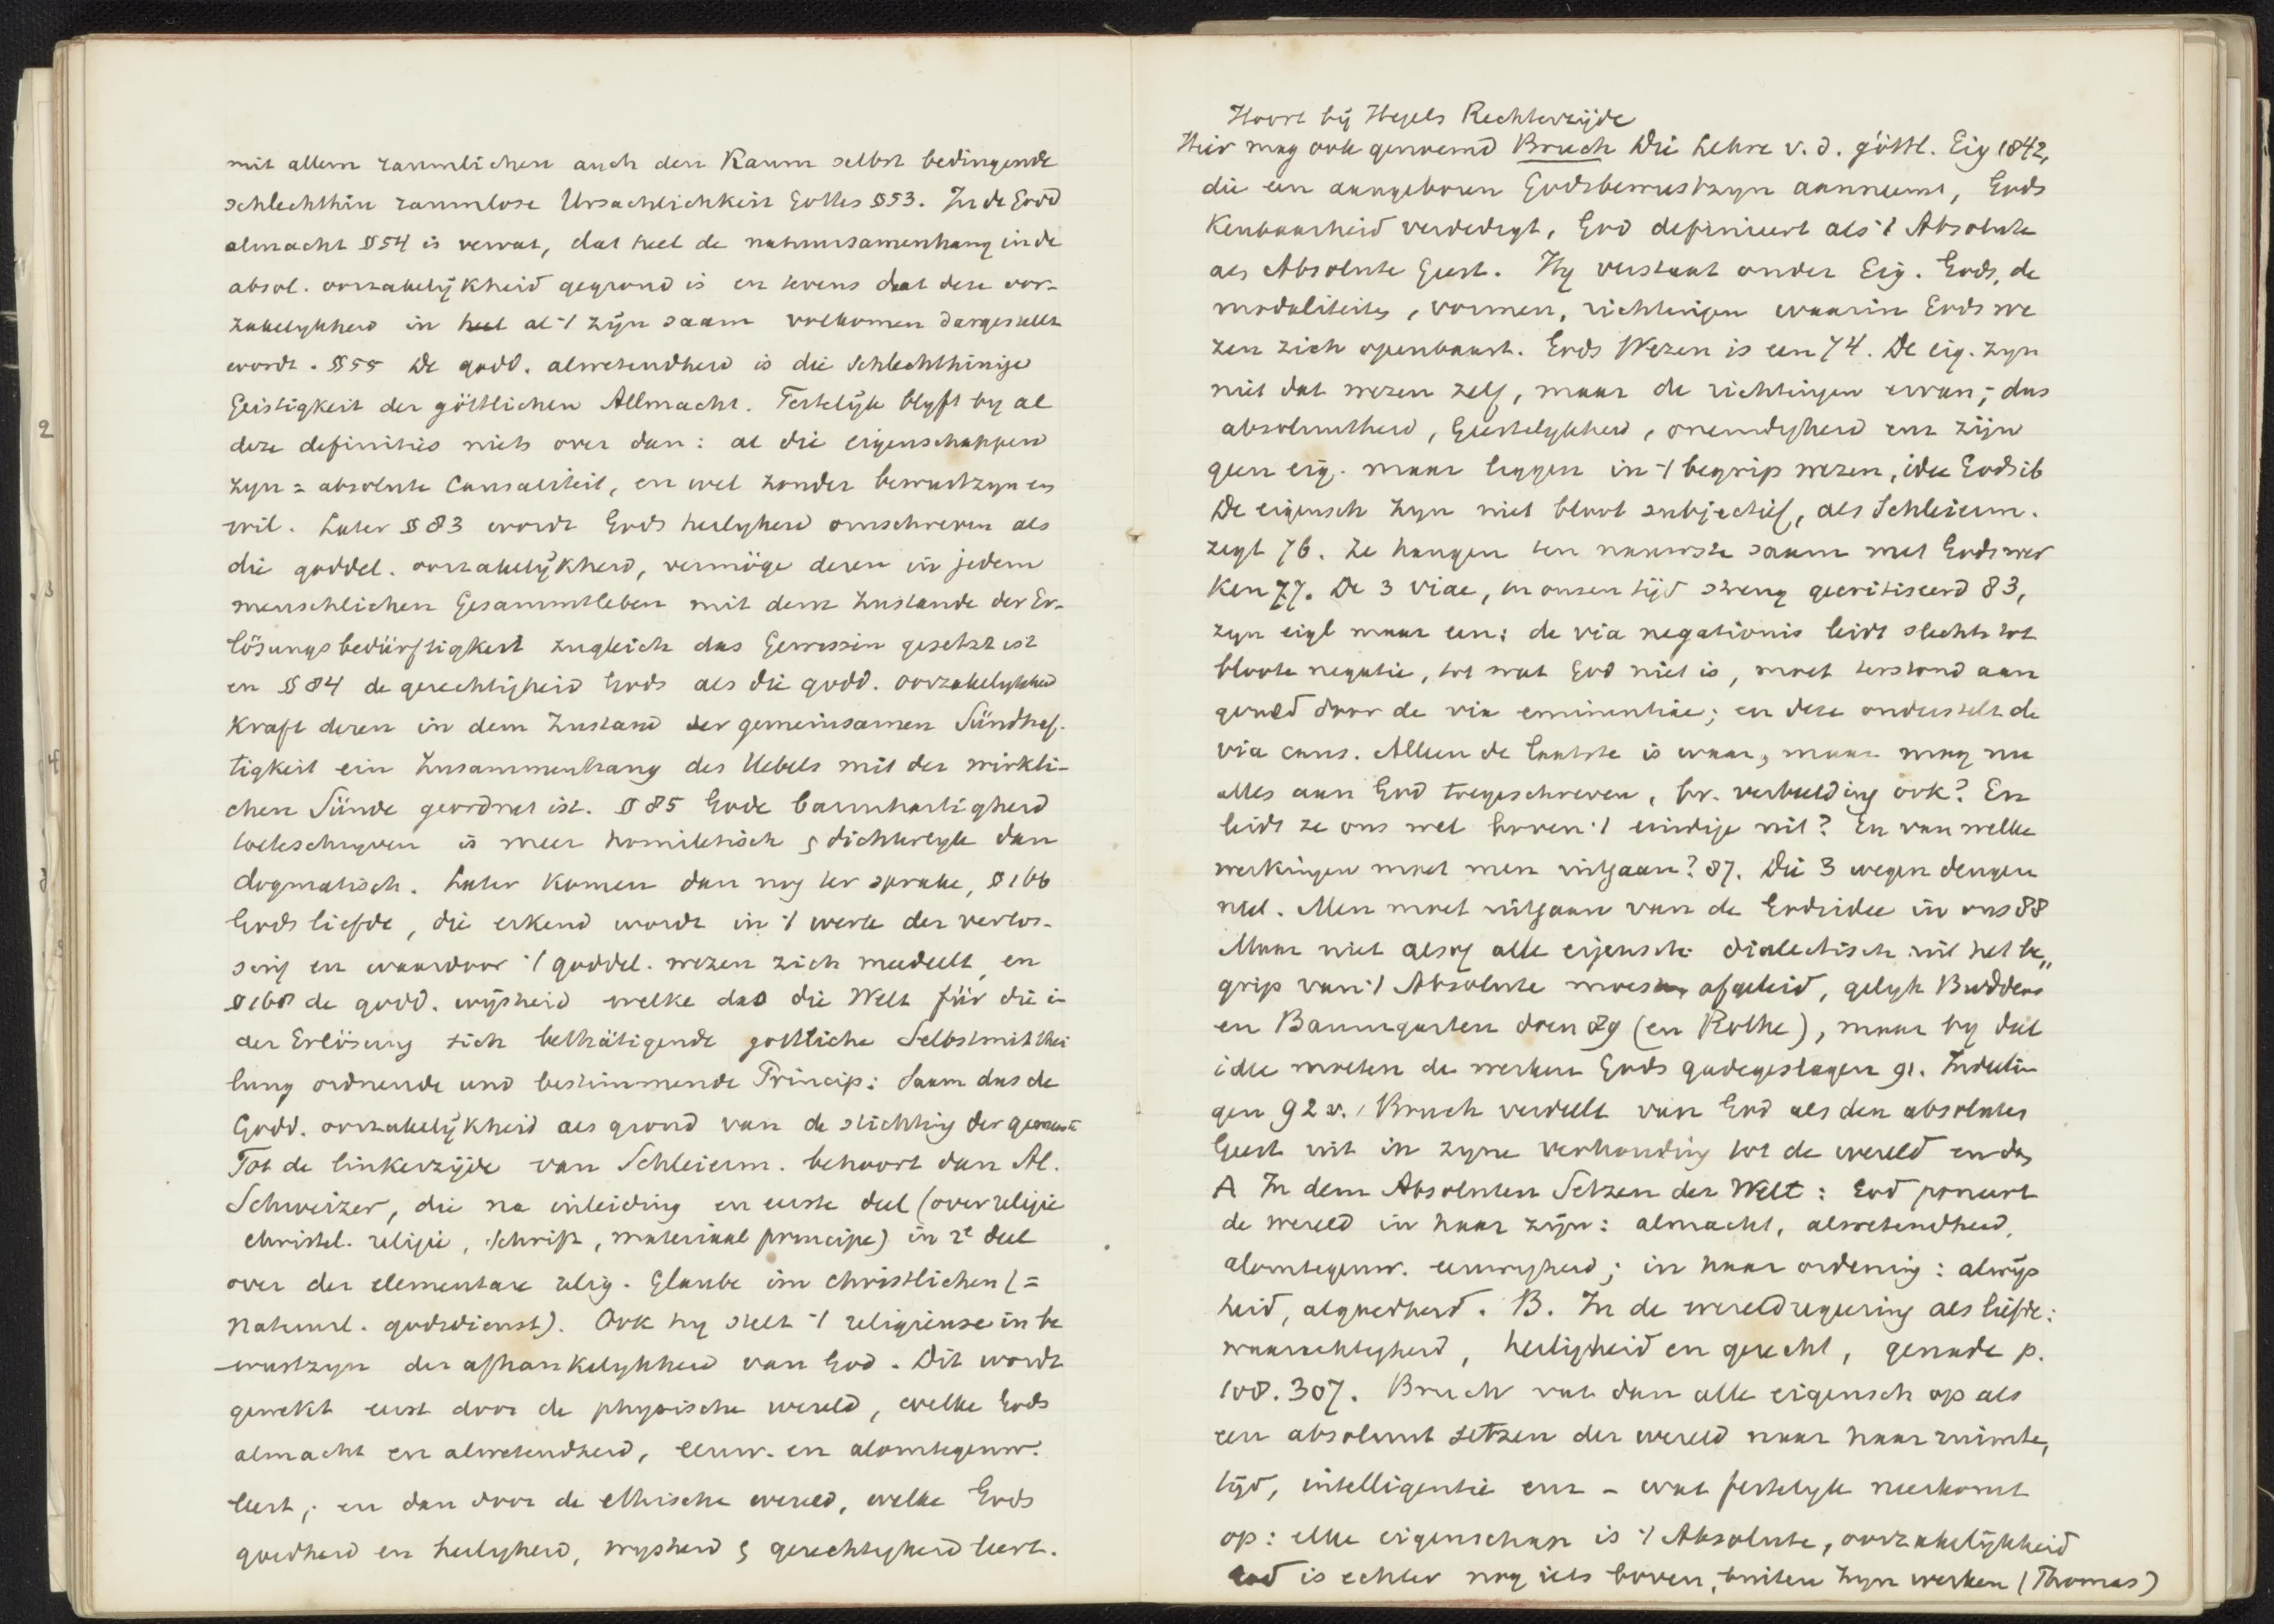 mit allem raumlichen auch den Raum selbst bedingende
schlechthin raumlose Ursachlichkeit Gottes §53. In de Godd
almacht §54 is vervat, dat heel de natuursamenhang in de
absol. oorzakelijkheid gegrond is en tevens dat deze oor-
zakelykheid in al 't zijn saam volkomen dargestellt
wordt. §55 De godd. alwetendheid is die schlechthinige
Geistigkeit der göttlichen Allmacht. Feitelijk blyft by al
deze definities niets over dan: al die eigenschappen
zyn = absolute Causaliteit, en wel zonder bewustzyn en
wil. Later §83 wordt Gods heilgheid omschreven als
die goddel. oorzakelijkheid, vermöge deren in jedem
menschlichen Gesammtleben mit dem Zustande der Er-
lösungsbedürftigkeit zugleich das Gewissen gesetzt ist
en §84 de gerechtigheid Gods als die godd. oorzakelykheid
kraft deren in dem Zustand der gemeinsamen Sündhaf-
tigkeit ein Zusammenhang des Uebels mit der wirkli-
chen Sünde geordnet ist. §85 Gode barmhartigheid
toeteschryven is meer homiletisch & dichterlyk dan
dogmatisch. Later komen dan nog ter sprake, §166
Gods liefde, die erkend wordt in 't werk der verlos-
sing en waardoor 't goddel. wezen zich meedeelt, en
§168 de godd. wijsheid welke das die Welt für die in
der Erlösung sich bethätigende gottliche Selbstmitthei
lung ordnende und bestimmende Princip: Saam dus de
Godd. oorzakelijkheid als grond van de stichting der gemeente
Tot de linkerzijde van Schleierm. behoort dan Al.
Schweizer, die na inleiding en eerste deel (over religie
christel. religie, schrift, materiaal principe) in 2e deel
over der elementare relig. Glaube im christlichen (=
Natuurl. godsdienst). Ook hy stelt 't religieuse in be
wustzyn der afhankelykheid van God. Dit wordt
gewekt eerst door de physische wereld, welke Gods
almacht en alwetendheid, eeuw. en alomtegenw.
leert; en dan door de ethische wereld, welke Gods
goedheid en heilgheid, wysheid & gerechtigheid leert.
Hoort bij Hegels Rechterzijde
Hier mag ook genoemd Bruch Die Lehre v. d. göttl. Eig 1842,
die een aangeboren Godsbewustzyn aanneemt, Gods
Kenbaarheid verdedigt, God definieert als 't Absolute
als Absolute Geest. Hy verstaat onder Eig. Gods, de
modaliteiten, vormen, richtingen waarin Gods we
zen zich openbaart. Gods Wezen is een 74. De eig. zyn
niet dat wezen zelf, maar de richtingen ervan; dus
absoluutheid, Geestelykheid, oneindigheid enz zijn
geen eig. maar liggen in 't begrip wezen, idee Gods ib
De eigensch zyn niet bloot subjectief, als Schleierm.
zegt 76. Ze hangen ten nauwste saam met Gods wer
ken 77. De 3 viae, in onzen tijd streng gecritiseerd 83,
zyn eigl maar een: de via negationis leidt slechts tot
bloote negatie, tot wat God niet is, moet terstond aan
gevuld door de via eminentiae; en deze onderstelt de
via caus. Alleen de laatste is waar, maar mag nu
alles aan God toegeschreven, bv. verbeelding ook? En
leidt ze ons wel boven 't eindige uit? En van welke
werkingen moet men uitgaan? 87. Die 3 wegen deugen
niet. Men moet uitgaan van de Godsidee in ons 88
Maar niet alsof alle eigensch. dialectisch uit het be„
grip van 't Absolute moest afgeleid, gelyk Buddeus
en Baumgarten doen 89 (en Rothe), maar by dat
idee moeten de werken Gods gadegeslagen 91. Indeelin
gen 92 v. Bruch verdeelt van God als den absoluten
Geest uit in zyne verhouding tot de wereld en dus
A In dem Absoluten Setzen der Welt: God poneert
de wereld in haar zijn: almacht, alwetendheid,
alomtegenw. eeuwigheid; in haar ordening: alwijs
heid, algoedheid. B. In de wereldregeering als liefde:
waarachtigheid, heiligheid en gerecht, genade p.
108. 307. Bruch vat dan alle eigensch op als
een absoluut setzen der wereld naar haar ruimte,
tijd, intelligentie enz - wat feitelyk neerkomt
op: elke eigenschap is 't Absolute, oorzakelijkheid
God is echter nog iets boven, buiten zyn werken (Thomas)
2
3
4